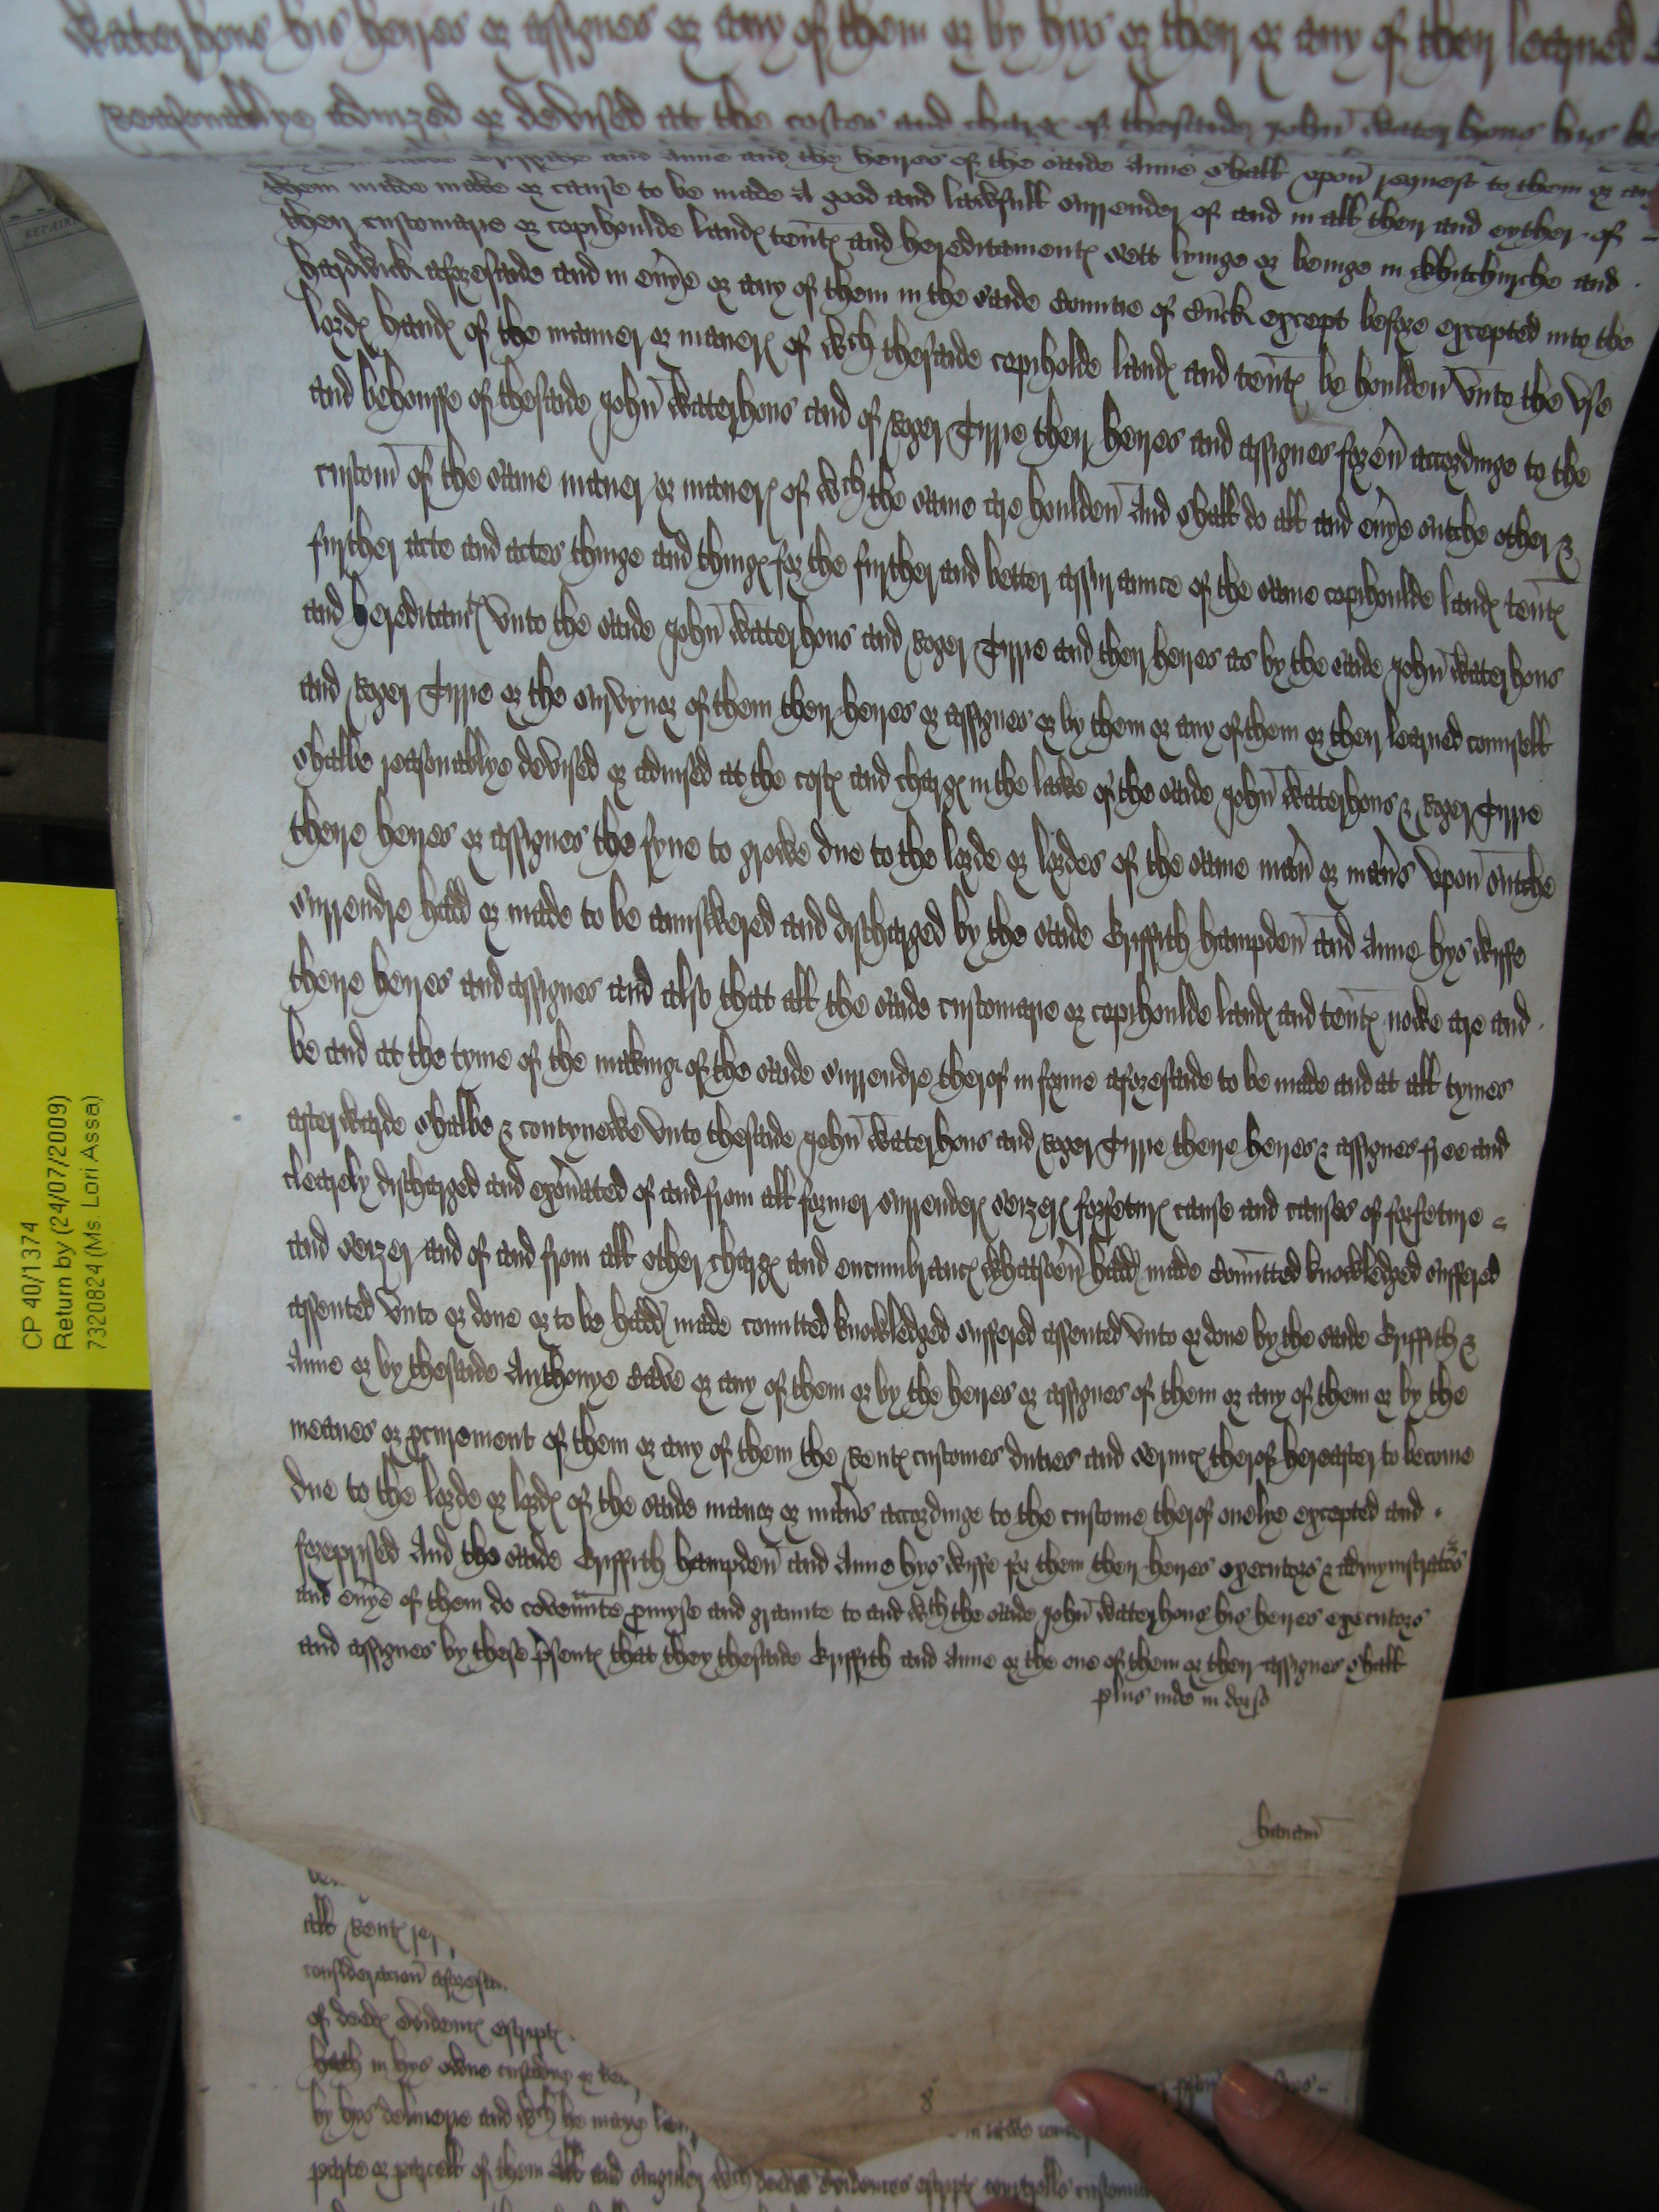 Waterhous his heires or assignes or any of them or by hys or their or any of their learned
Reasonablye advized or devised at the costes and charg of thesaide John Waterhous his
and Anne and the heires of the saide Anne shall upon request to them or
them made make or cause to be made A good and lawfull surrender of and in all their and eyther of
their customarie or copihoulde land tent and hereditament sett lyinge or beinge in Whitchurche and
hardwick aforesaide and in evye or any of them in the saide Countie of Buck except before excepted into the
lord hand of the manner or maner of wch thesaide copiholde land and tent be houlden Unto the use
and behouffe of thesaide John Waterhous and of Roger Tirrie their heires and assignes forev accordinge to the
custom of the same maner or maner of wch the same are houlden And shall do all and evye sutche other &
further acte and actes thinge and thing for the further and better assurance of the same copihoulde land tent
and hereditam Unto the saide John Waterhous and Roger Tirrie and their heires as by the saide John Waterhous
and Roger Tirrie or the survyvor of them their heires or assignes or by them or any of them or their learned counsell
shalbe reasonablye devised or advised at the cost and charg in the lawe of the saide John Waterhous & Roger Tirrie
theire heires or assignes the fyne to growe due to the lorde or lordes of the same man or mans upon sutche
surrendre hadd or made to be aunswered and discharged by the saide Griffith hampden and Anne hys wiffe
theire heires and assignes and also that all the saide customarie or copihoulde land and tent nowe are and
be and at the tyme of the making of the saide surrendre therof in forme aforesaide to be made and at all tymes
afterwarde shalbe & contynewe Unto thesaide John Waterhous and Roger Tirrie theire heires & assignes free and
clearely discharged and exonated of and from all former surrender seizer forfetur cause and causes of forfeture
and seizer and of and from all other charg and encumbranc whatsoev hadd made comitted knowledged suffered
assented Unto or done or to be hadd made comitted knowledged suffered assented Unto or done by the saide Griffith &
Anne or by thesaide Anthonye Cave or any of them or by the heires or assignes of them or any of them or by the
meanes or pcurement of them or any of them the Rent customes duties and servic therof hereafter to become
due to the lorde or lord of the saide manor or mans accordinge to the custome therof onelye excepted and
foreprised And the saide Griffith hampden and Anne hys wiffe for them their heires executors & admynistrators
and evye of them do covenante pmyse and graunte to and wth the saide John Waterhous his heires executors
and assignes by these psent that they thesaide Griffith and Anne or the one of them or their assignes shall
plus inde in dorso
all Rent
consideracion aforesa
of deed evidenc escript
hath in hys owne custodye or
by hys deliverie and wch he maye
parte or parcell of them All and singuler wch deedes evidences escript
8
CP 40/1374
Return by (24/07/2009)
7320824 (Ms. Lori Assa)